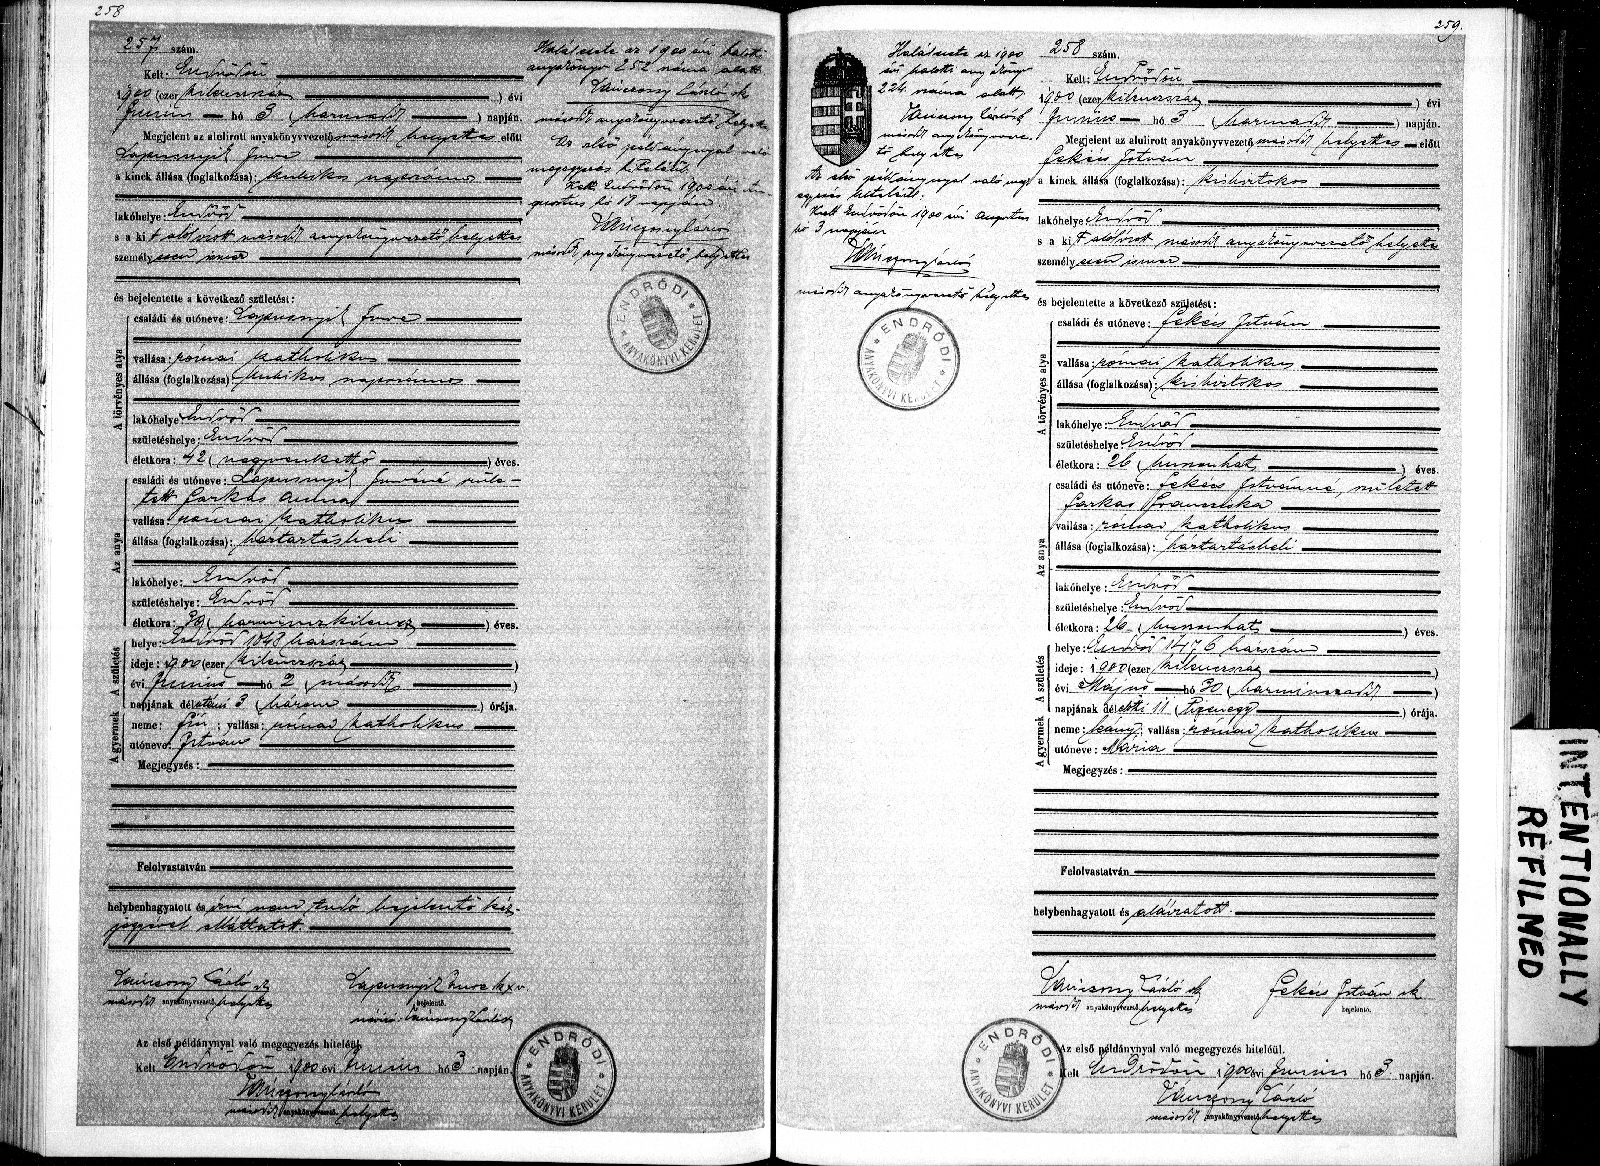 258
257 szám.
Kelt: Endrődön
1900 (ezerkilenczszáz) évi
Junius hó 3 (harmadik) napján.
Megjelent az alulirott anyakönyvvezető másodk helyettes előtt
Lapusnyik Imre
a kinek állása (foglalkozása): kubikos napszámos
lakóhelye Endrőd
s a kit alólirott másodk anyakönyvvezető helyettes
személyesen ismer
és bejelentette a következő születést:
A törvényes atya
családi és utóneve: Lapusnyik Imre
vallása: római katholikus
állása (foglalkozása): kubikos napszámos
lakóhelye Endrőd
születéshelye: Endrőd
életkora: 42 (negyvenkettő) éves.
Az anya
családi és utóneve: Lapusnyik Imréné szüle-
tett Farkas Anna
vallása: római katholikus
állása (foglalkozása): háztartásbeli
lakóhelye: Endrőd
születéshelye: Endrőd
életkora: 39 (harminczkilencz) éves.
A születés
helye: Endrőd 1048 házszám
ideje: 1900 (ezerkilenczszáz)
évi Junius hó 2 (második)
napjának délutáni 3 (három) órája.
A gyermek
neme: fiú; vallása: római katholikus
utóneve: István
Megjegyzés:
Felolvastatván
helybenhagyatott és irni nem tudó bejelentő kéz-
jegyével elláttatott.
Vaniscsony László sk
másodk anyakönyvvezető helyettes
Lapusnyik Imre kxv
bejelentő.
Az első példánynyal való megegyezés hiteléül.
Kelt Endrődön 1900 évi Junius hó 3 napján.
másodk anyakönyvvezető helyettes
ENDRŐDI
ANYAKÖNYVI KERÜLET
Halálesete az 1900 évi haloti
anyakönyv 252 száma alatt
másodk anyakönyvvezető helyettes
Az első példánynyal való
megegyezés hiteléül.
Kelt Endrődön 1900 évi au-
gusztus hó 18 napján.
másodk anyakönyvvezető helyettes
ENDRŐDI
ANYAKÖNYVI KERÜLET
259.
Halálesete az 1900
évi haloti anyakönyv
224 száma alatt
másodk anyakönyvveze-
tő helyettes
Az első példánynyal való meg-
egyezés hiteléül.
Kelt Endrődön 1900 évi augusztus
hó 3 napján
másodk anyakönyvvezető helyettes
ENDRŐDI
ANYAKÖNYVI KERÜLET
258 szám.
Kelt: Endrődön
1900 (ezerkilenczszáz) évi
Junius hó 3 (harmadik) napján.
Megjelent az alulirott anyakönyvvezető másodk helyettes előtt
Gekécs István
a kinek állása (foglalkozása): kisbirtokos
lakóhelye Endrőd
s a kit alólirott másodk anyakönyvvezető helyettes
személyesen ismer
és bejelentette a következő születést:
A törvényes atya
családi és utóneve: Gekécs István
vallása: római katholikus
állása (foglalkozása): kisbirtokos
lakóhelye: Endrőd
születéshelye: Endrőd
életkora: 26 (huszonhat) éves.
Az anya
családi és utóneve: Gekécs Istvánné, született
Farkas Franciska
vallása: római katholikus
állása (foglalkozása): háztartásbeli
lakóhelye: Endrőd
születéshelye: Endrőd
életkora: 26 (huszonhat) éves.
A születés
helye: Endrőd 1476 házszám
ideje: 1900 (ezerkilenczszáz)
évi Május hó 30 (harminczadik)
napjának délelőtti 11 (tizenegy) órája.
A gyermek
neme: leány; vallása: római katholikus
utóneve: Mária
Megjegyzés:
Felolvastatván
helybenhagyatott és aláiratott.
másodk anyakönyvvezető helyettes
Gekécs István sk
bejelentő.
Az első példánynyal való megegyezés hiteléül.
Kelt Endrődön 1900 évi Junius hó 3 napján.
másodk anyakönyvvezető helyettes
ENDRŐDI
ANYAKÖNYVI KERÜLET
INTENTIONALLY
REFILMED